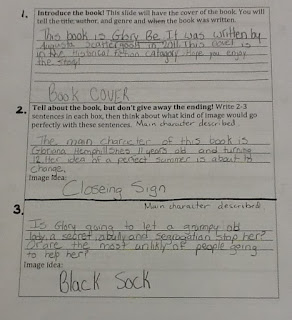 1. Introduce the book! This slide will have the cover of the book. You will
tell the title, author, and genre and when the book was written.
This book is Glory Be. It was written by
Augusta Scattergood in 2011. This novel is
in the Historical Fiction category. Hope you enjoy
the story!
Book COVER
2. Tell about the book, but don't give away the ending! Write 2-3
sentences in each box, then think about what kind of image would go
perfectly with these sentences. Main character described.
The main character of this book is
Gloriana Hemphill. Shes 11 years old and turning
12. Her idea of a perfect summer is about to
change.
Image Idea:
Closeing Sign
3. Main character described
Is Glory going to let a grumpy old
lady, a secret, a bully and segrogation stop her?
Or are the most unlikly of people going
to help her?
Image idea:
Black Sock